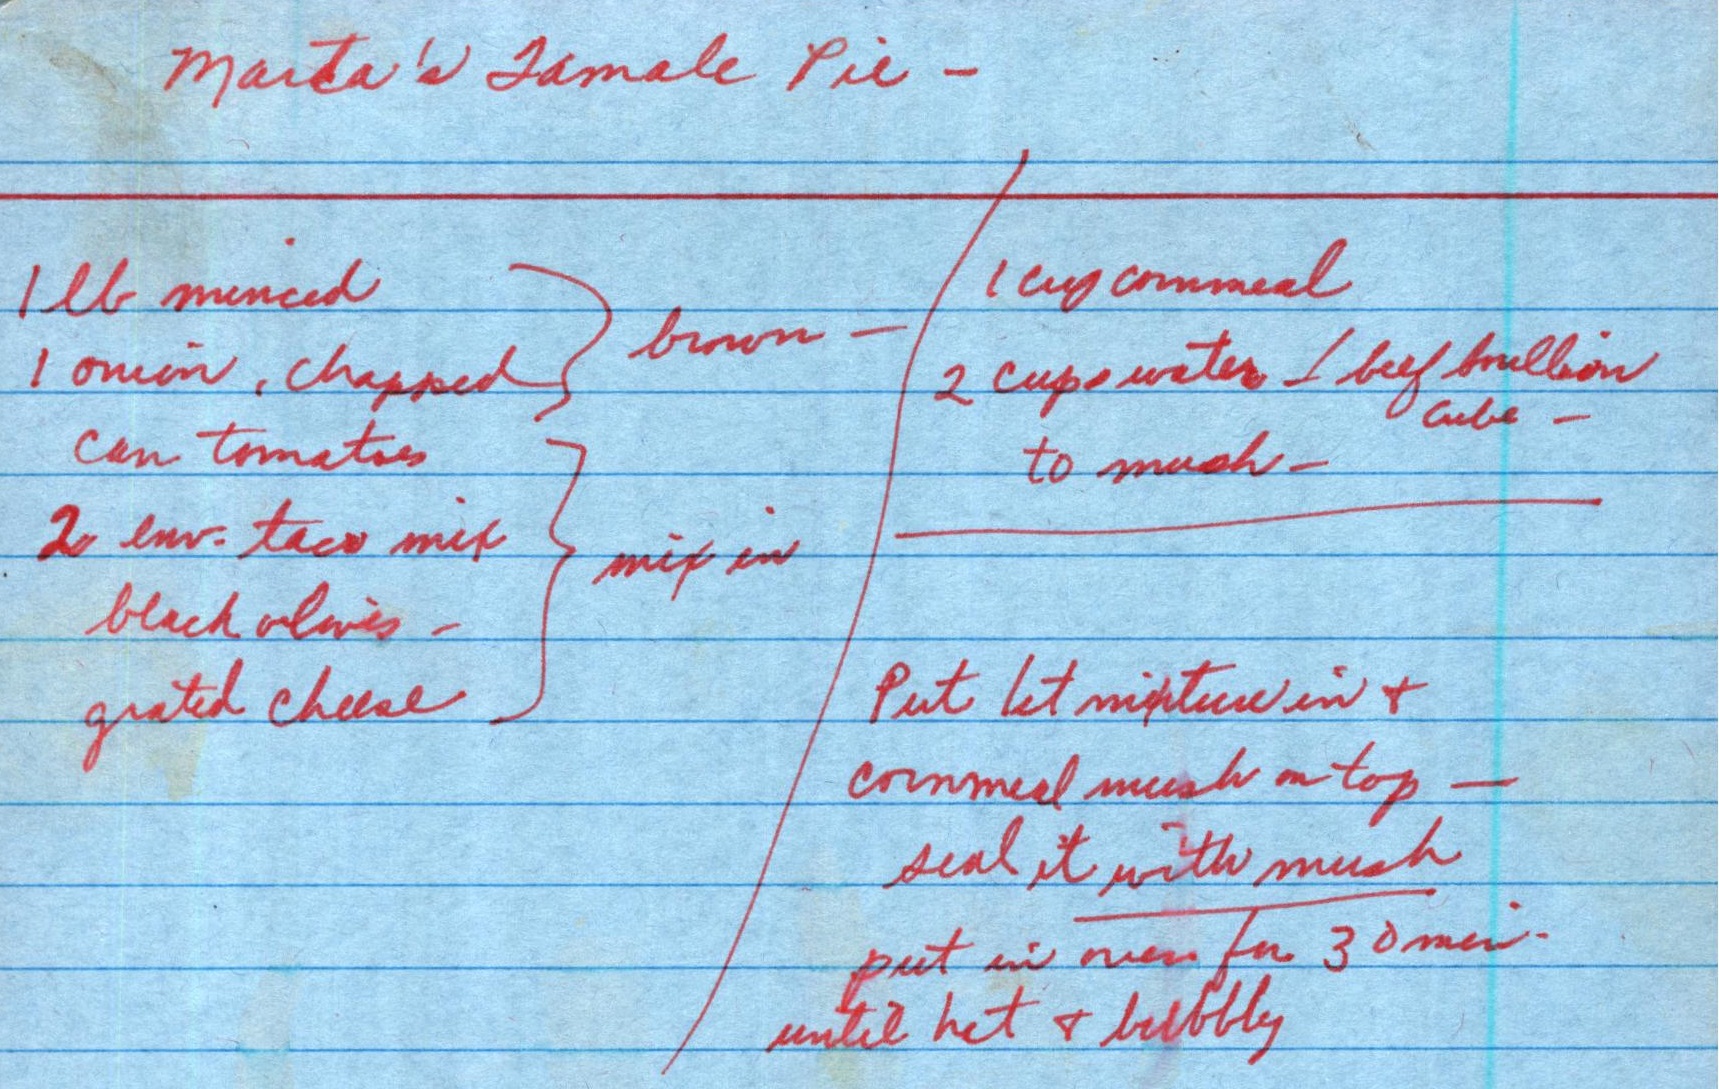 Marta's Tamale Pie -
1 lb minced
1 onion, chopped
brown -
can tomatoes
2 env. taco mix
black olives -
grated cheese
mix in
1 cup cornmeal
2 cups water 1 beef bullion
cube -
to mush -
Put 1st mixture in +
cornmeal mush on top -
seal it with mush
put in oven for 30 min.
until hot + bubbly